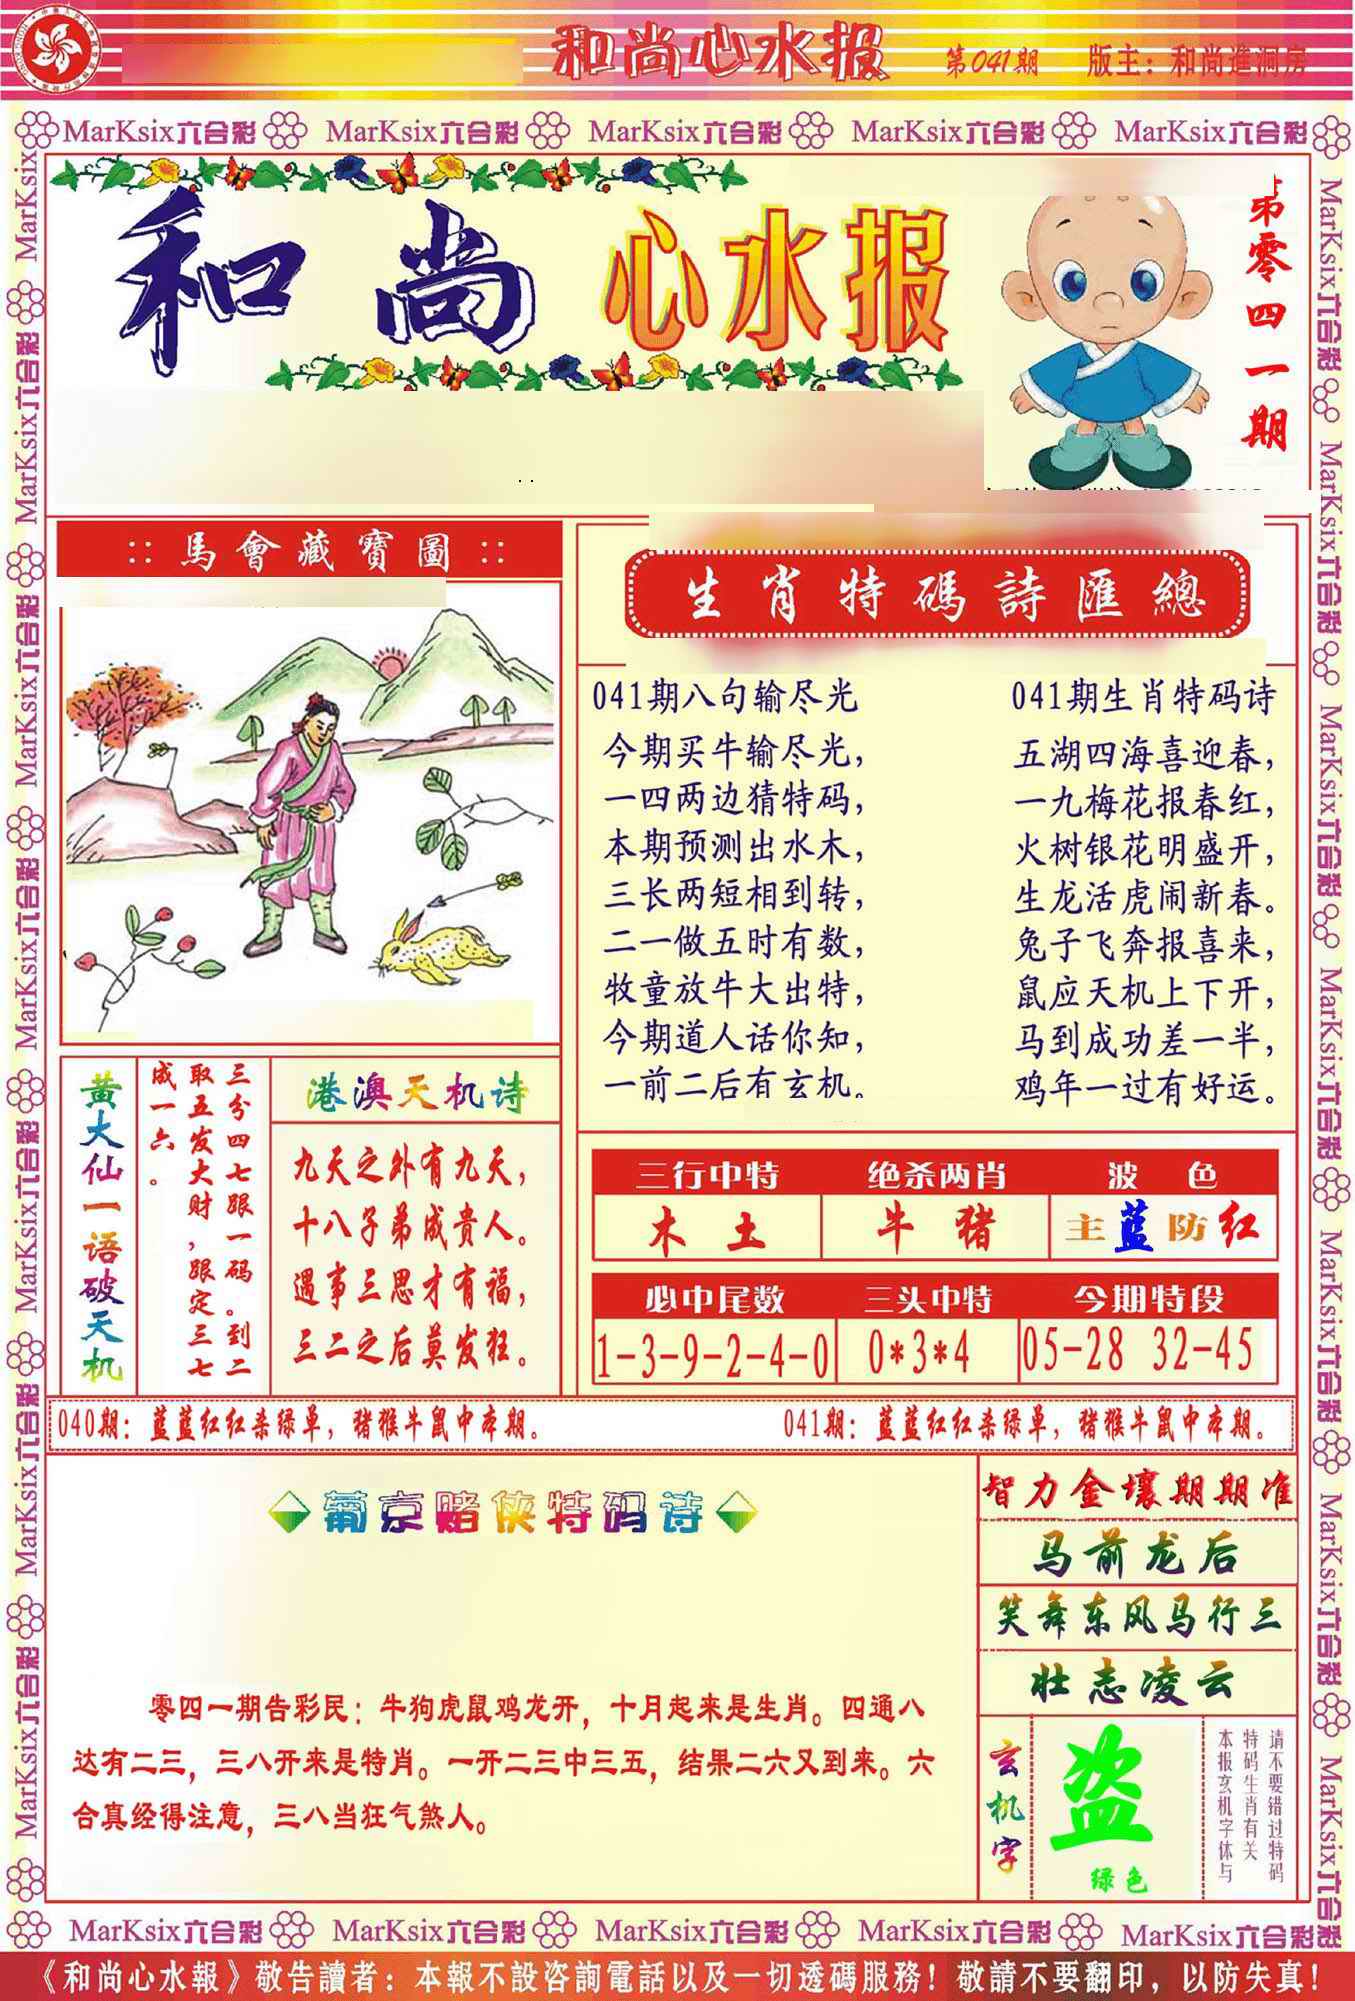 和尚心水报 第041期 版主：和尚進洞房
MarKsix六合彩 MarKsix六合彩 MarKsix六合彩 MarKsix六合彩 MarKsix六合彩
和尚 心水报
第零四一期
:: 馬會藏寶圖 ::
生肖特碼詩匯總
041期八句输尽光
今期买牛输尽光，
一四两边猜特码，
本期预测出水木，
三长两短相到转，
二一做五时有数，
牧童放牛大出特，
今期道人话你知，
一前二后有玄机。
041期生肖特码诗
五湖四海喜迎春，
一九梅花报春红，
火树银花明盛开，
生龙活虎闹新春。
兔子飞奔报喜来，
鼠应天机上下开，
马到成功差一半，
鸡年一过有好运。
黄大仙一语破天机
三分四七跟一码。到二
取五发大财，跟定三七
成一六。
港澳天机诗
九天之外有九天，
十八子弟成贵人。
遇事三思才有福，
三二之后莫发狂。
三行中特 绝杀两肖 波色
木土 牛猪 主蓝防红
必中尾数 三头中特 今期特段
1-3-9-2-4-0 0*3*4 05-28 32-45
040期：蓝蓝红红杀绿单，猪猴牛鼠中本期。 041期：蓝蓝红红杀绿单，猪猴牛鼠中本期。
葡京赌侠特码诗
零四一期告彩民：牛狗虎鼠鸡龙开，十月起来是生肖。四通八
达有二三，三八开来是特肖。一开二三中三五，结果二六又到来。六
合真经得注意，三八当狂气煞人。
智力金壤期期准
马前龙后
笑舞东风马行三
壮志凌云
玄机字
盗
绿色
请不要错过特码
特码生肖有关
本报玄机字体与
MarKsix六合彩 MarKsix六合彩 MarKsix六合彩 MarKsix六合彩 MarKsix六合彩
《和尚心水報》敬告讀者：本報不設咨詢電話以及一切透碼服務！敬請不要翻印，以防失真！